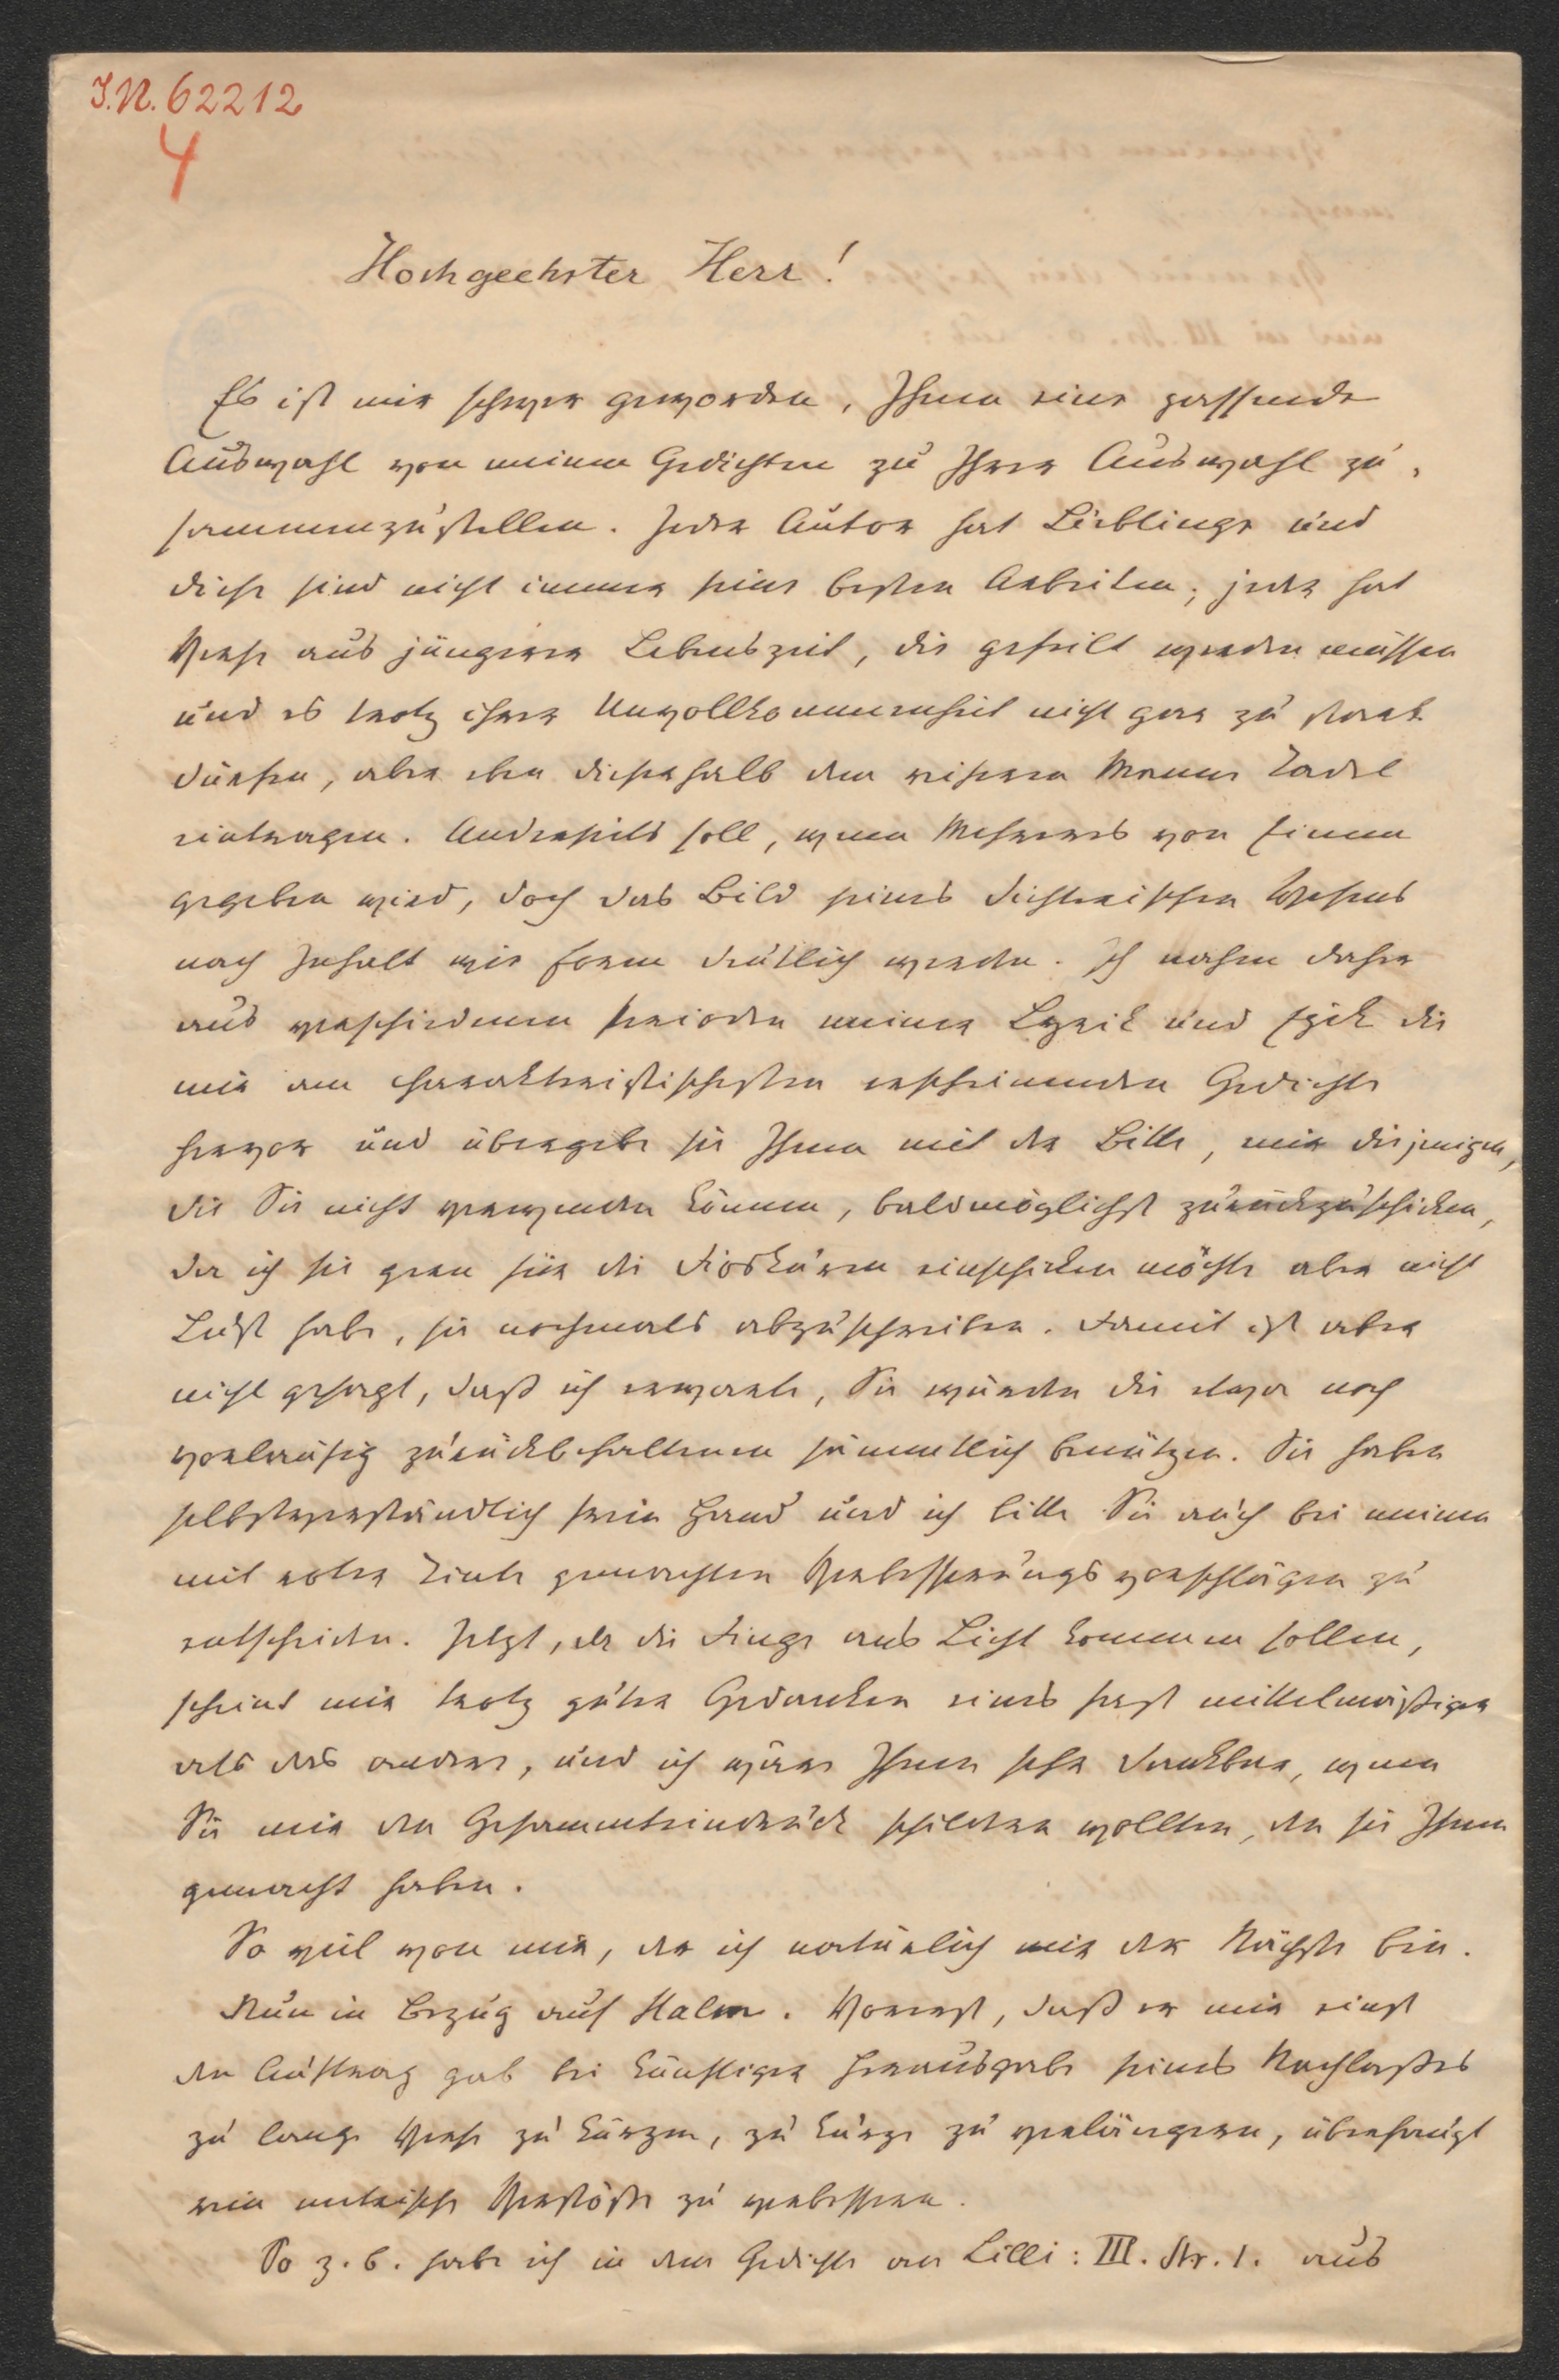 J.N. 62212
4
Hochgeehrter Herr!
Es ist mir schwer geworden, Ihnen eine passende
Auswahl von meinen Gedichten zu Ihrer Auswahl zu-
sammenzustellen. Jeder Autor hat Lieblinge und
diese sind nicht immer seine besten Arbeiten; jeder hat
Verse aus jüngerer Lebenszeit, die gefeilt werden müssen
und es trotz ihrer Unvollkommenheit nicht gar zu stark
dürfen, aber eben dieserhalb dem reiferen Manne Tadel
eintragen. Anderseits soll, wenn Mehreres von Einem
gegeben wird, doch das Bild seines dichterischen Wesens
nach Inhalt wie Form deutlich werden. Ich nahm daher
aus verschiedenen Perioden meiner Lyrik und Epik die
mir am charakteristischesten erscheinenden Gedichte
hervor und übergebe sie Ihnen mit der Bitte, mir diejenigen,
die Sie nicht verwenden können, baldmöglichst zurückzuschicken,
da ich sie gern für die Dioskuren einschicken möchte aber nicht
Lust habe, sie nochmals abzuschreiben. Damit ist aber
nicht gesagt, daß ich erwarte, Sie würden die etwa noch
vorläufig zurückbehaltenen sämmtlich benützen. Sie haben
selbstverständlich freie Hand und ich bitte Sie auch bei meinen
mit rother Tinte gemachten Verbesserungsvorschlägen zu
entscheiden. Jetzt, da die Dinge ans Licht kommen sollen,
scheint mir trotz guter Gedanken eines fast mittelmäßiger
als das andere, und ich wäre Ihnen sehr dankbar, wenn
Sie mir den Gesammteindruck schildern wollten, den sie Ihnen
gemacht haben.
So viel von mir, da ich natürlich mir der Nächste bin.
Nun in Bezug auf Halm. Vorerst, daß er mir einst
den Auftrag gab bei künftiger Herausgabe seines Nachlaßes
zu lange Verse zu kürzen, zu kurze zu verlängern, überhaupt
rein metrische Verstöße zu verbessern.
So z. B. habe ich in dem Gedichte an Lilli: III. Str. 1. aus